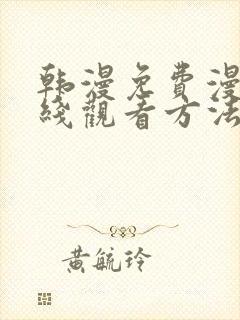 韩漫免费漫
线观看方法
黄毓玲